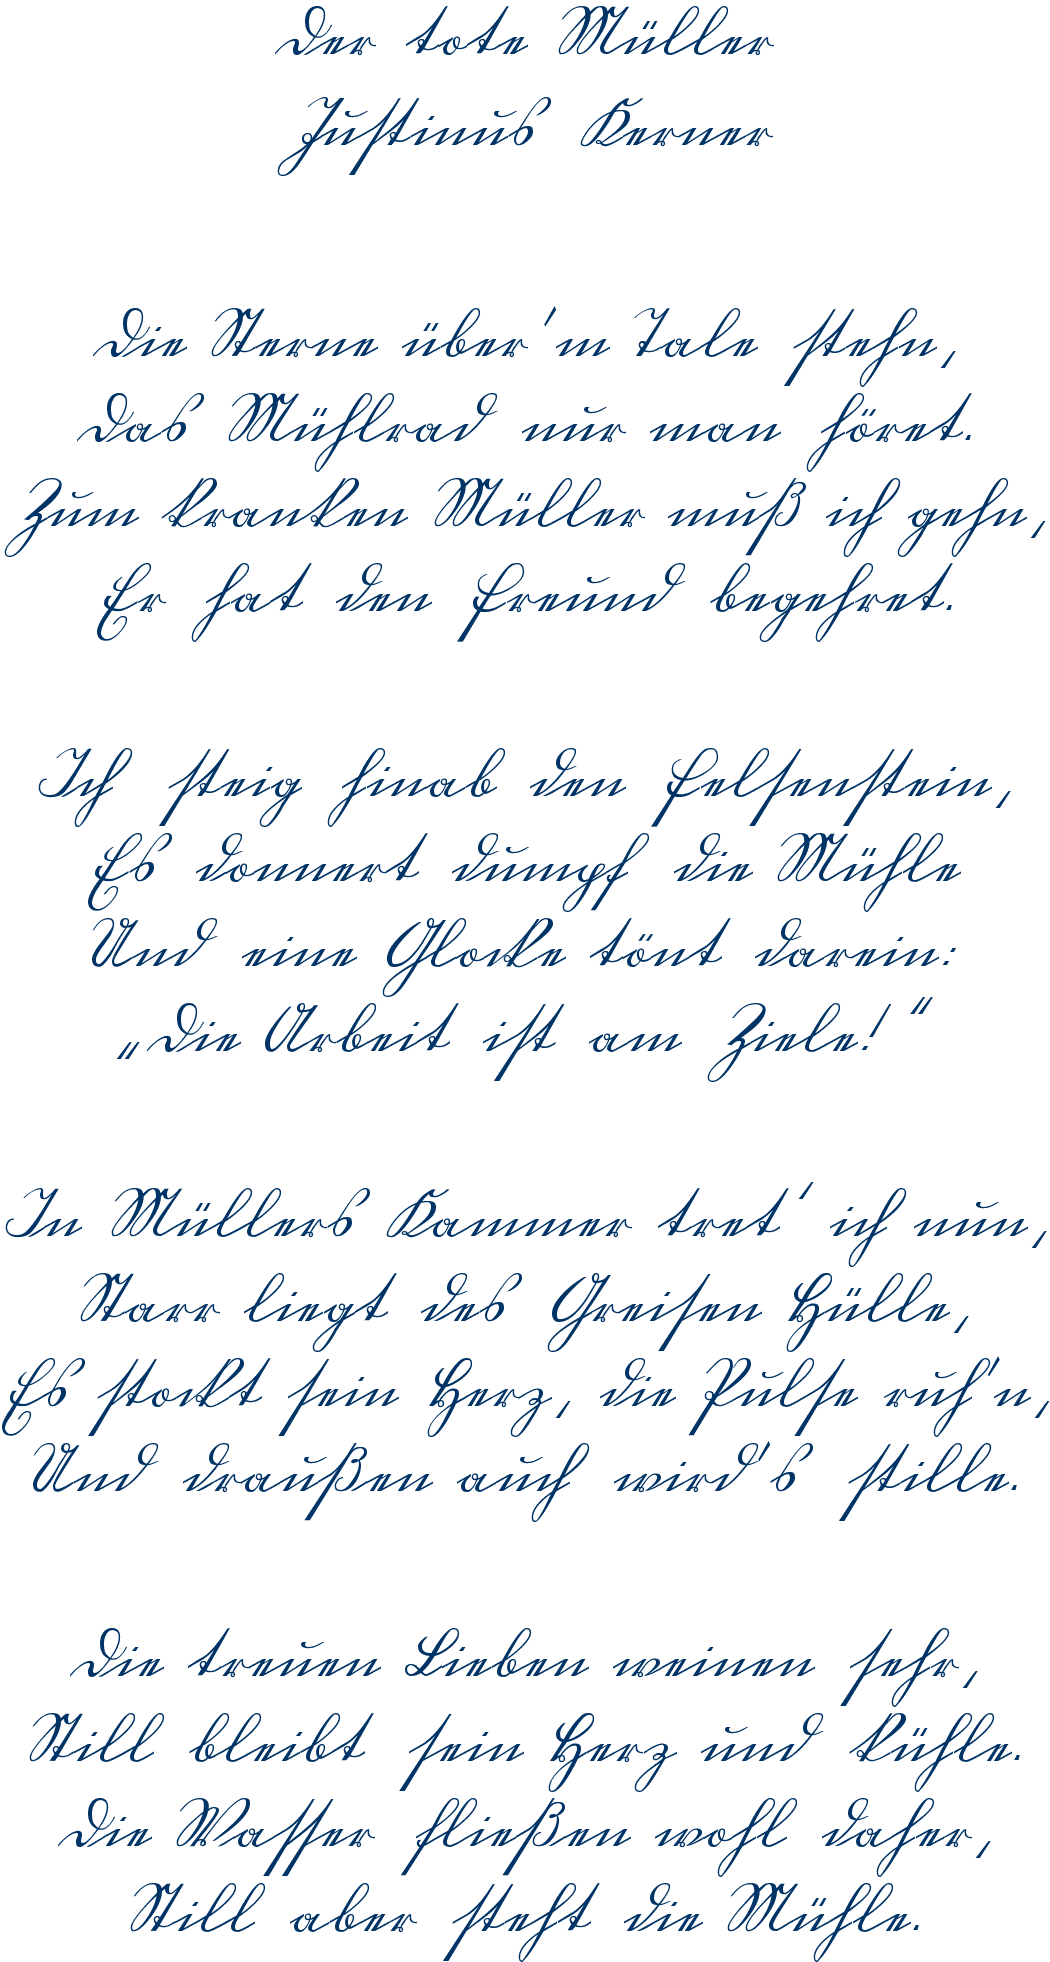 Der tote Müller
Justinus Kerner
Die Sterne über'm Tale stehn,
Das Mühlrad nur man höret.
Zum kranken Müller muß ich gehn,
Er hat den Freund begehret.
Ich steig hinab den Felsenstein,
Es donnert dumpf die Mühle
Und eine Glocke tönt darein:
„Die Arbeit ist am Ziele!“
In Müllers Kammer tret' ich nun,
Starr liegt des Greisen Hülle,
Es stockt sein Herz, die Pulse ruh'n,
Und draußen auch wird's stille.
Die treuen Lieben weinen sehr,
Still bleibt sein Herz und kühle.
Die Wasser fließen wohl daher,
Still aber steht die Mühle.